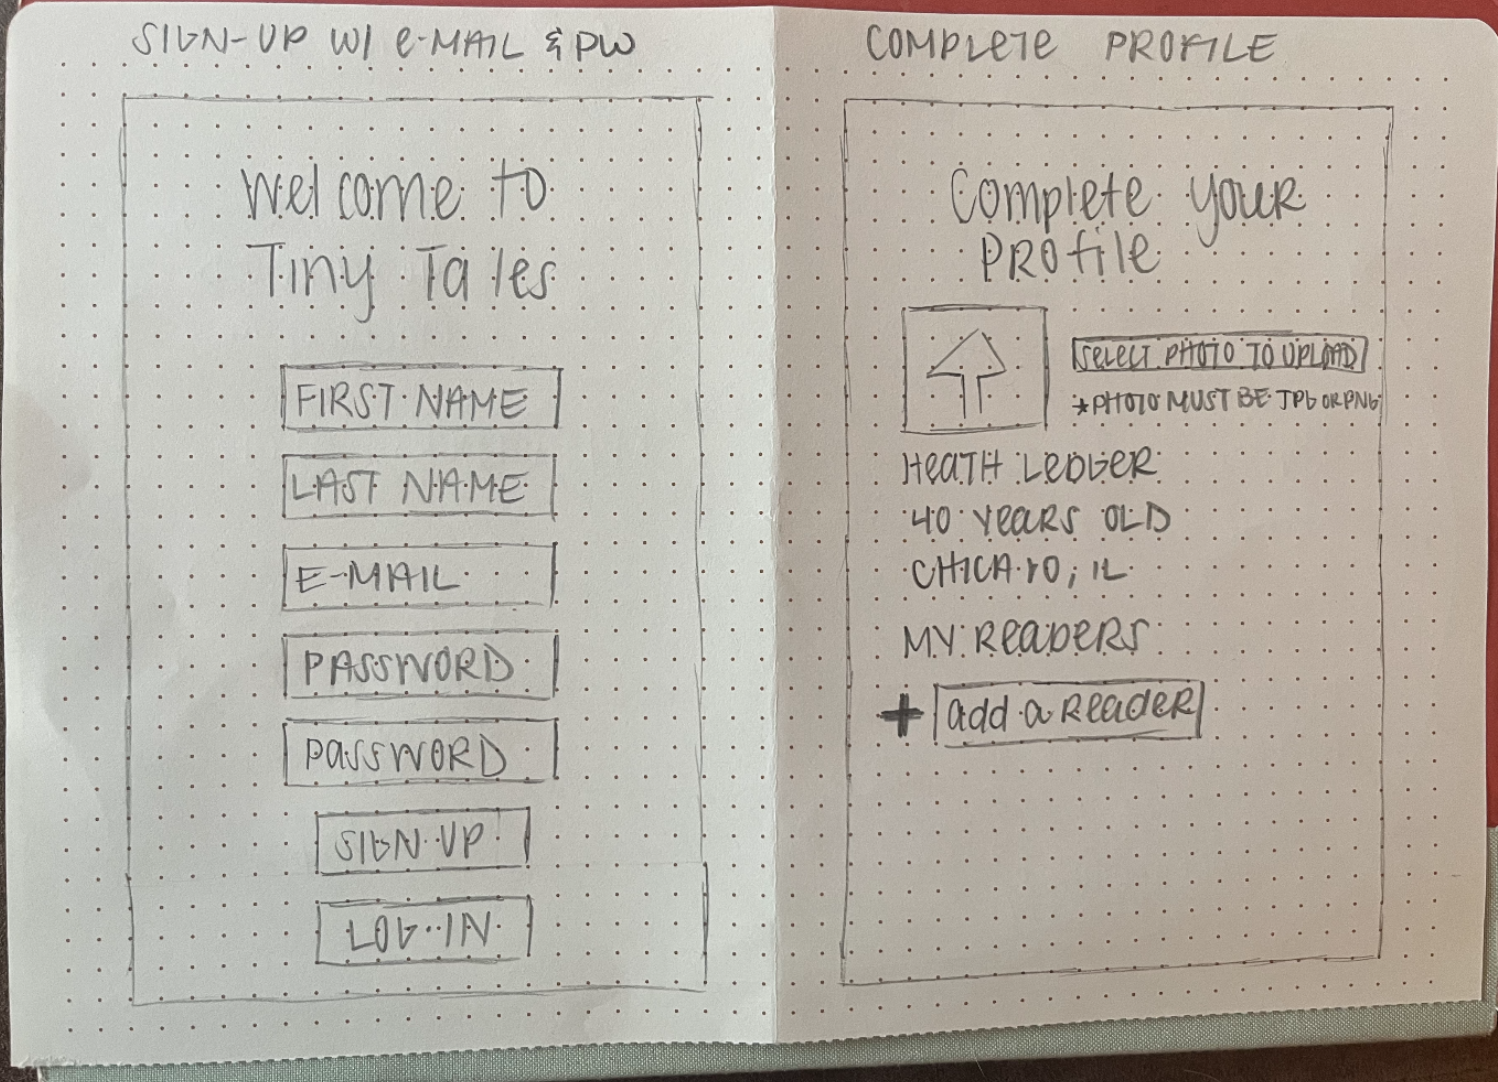 SIGN-UP W/ e-MAIL & PW
Welcome to
Tiny Tales
FIRST NAME
LAST NAME
E-MAIL
PASSWORD
PASSWORD
SIGN UP
LOG-IN
COMPLETE PROFILE
Complete your
Profile
SELECT PHOTO TO UPLOAD
*PHOTO MUST BE JPG OR PNG
HEATH LEDGER
40 YEARS OLD
CHICAGO, IL
MY READERS
+ add a READER